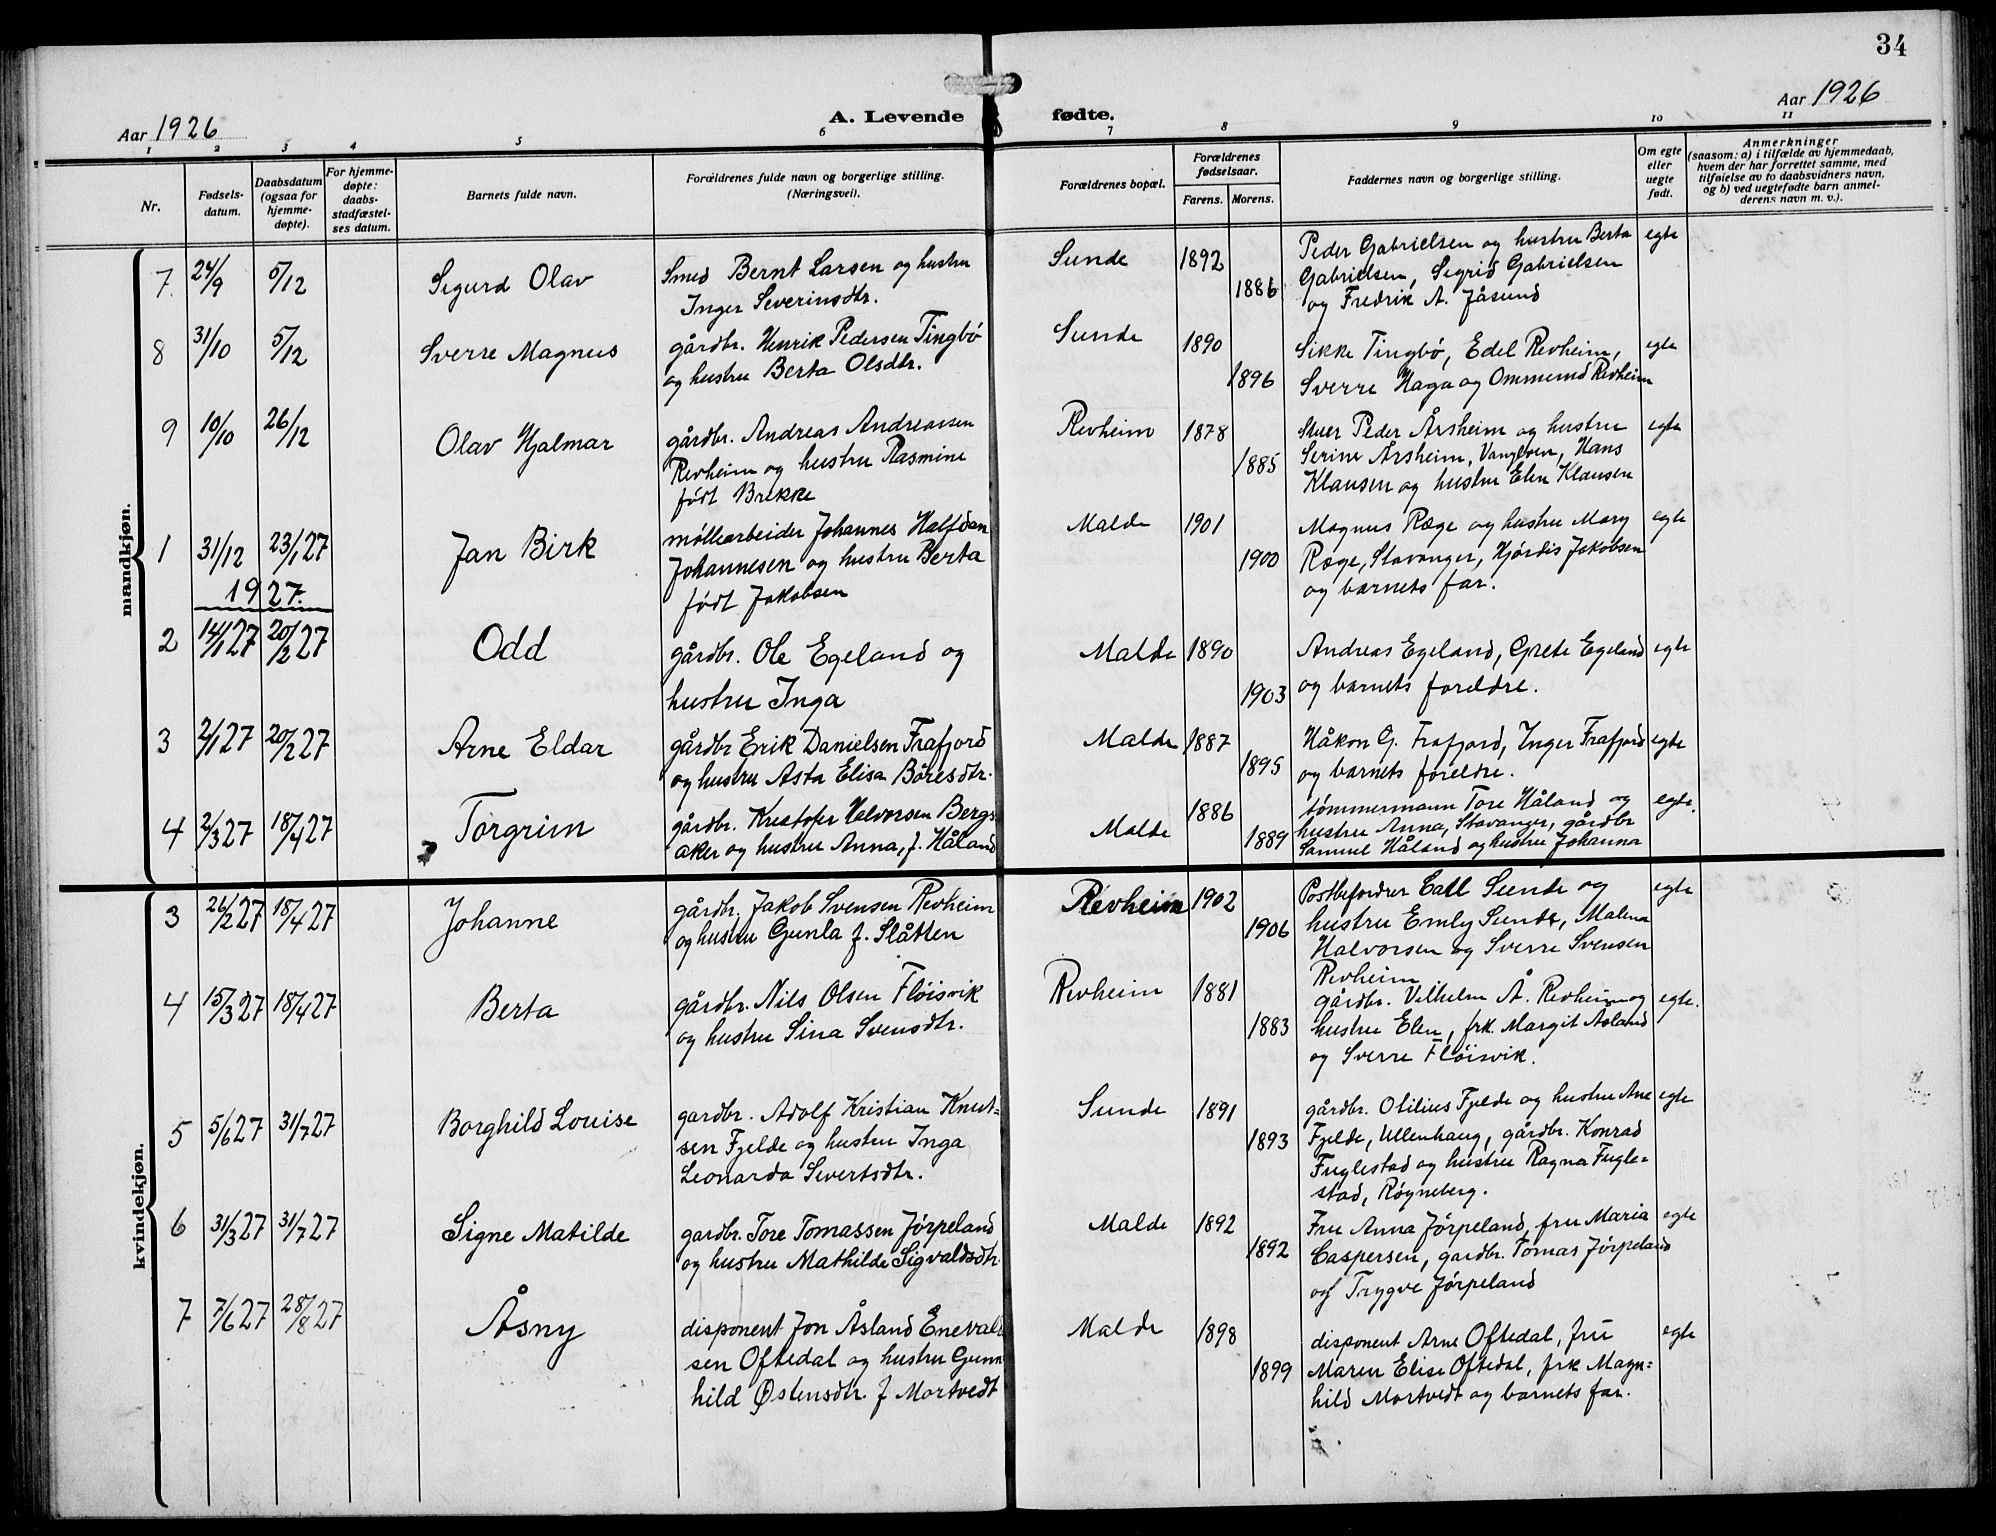 34
Aar 1926
A. Levende fødte.
Aar 1926
1 2 3 4 5 6 7 8 9 10 11
Nr.
Fødsels-
datum.
Daabsdatum
(ogsaa for
hjemme-
døpte).
For hjemme-
døpte:
daabs-
stadfæstel-
ses datum.
Barnets fulde navn.
Forældrenes fulde navn og borgerlige stilling.
(Næringsvei).
Forældrenes bopæl.
Forældrenes
fødselsaar.
Farens. Morens.
Faddernes navn og borgerlige stilling.
Om egte
eller
uegte
født.
Anmerkninger
(saasom: a) i tilfælde av hjemmedaab,
hvem der har forrettet samme, med
tilføielse av to daabsvidners navn,
og b) ved uegtefødte barn anmel-
derens navn m. v.).
mandkjøn.
7. 24/9 5/12 Sigurd Olav
Smed Bernt Larsen og hustru
Inger Severinsdtr.
Sunde 1892 1886
Peder Gabrielsen og hustru Berta
Gabrielsen, Sigrid Gabrielsen
og Fredrik A. Jåsund
egte
8 31/10 5/12 Sverre Magnus
gårdbr. Henrik Pedersen Tingbö
og hustru Berta Olsdtr.
Sunde 1890 1896
Sikke Tingbö, Edel Revheim,
Sverre Haga og Ommund Revheim
egte
9 10/10 26/12 Olav Hjalmar
gårdbr. Andreas Andreassen
Revheim og hustru Rasmine
født Brekke
Revheim 1878 1885
Peder Årsheim og hustru
Serine Årsheim, Hans
Klausen og hustru Elen Klausen
egte
1 31/12 23/1 27 Jan Birk
møllearbeider Johannes Halfdan
Johannesen og hustru Berta
født Jakobsen
Malde 1901 1900
Magnus Ræge og hustru Mary
Ræge, Stavanger, Hjördis Jakobsen
og barnets far.
egte
1927.
2 14/1 27 20/2 27 Odd
gårdbr. Ole Egeland og
hustru Inga
Malde 1890 1903
Andreas Egeland, Grete Egeland
og barnets foreldre.
egte
3 2/1 27 20/2 27 Arne Eldar
gårdbr Erik Danielsen Frafjord
og hustru Asta Elisa Böresdtr.
Malde 1887 1895
Håkon G. Frafjord, Inger Frafjord
og barnets foreldre.
egte
4 2/3 27 18/4 27 Torgrim
gårdbr. Kristofer Halvorsen Bergs-
aker og hustru Anna, f. Håland
Malde 1886 1889
tömmermann Tore Håland og
hustru Anna, Stavanger, gårdbr
Samuel Håland og hustru Johanna
egte.
kvindekjøn.
3 26/2 27 18/4 27 Johanne
gårdbr. Jakob Svensen Revheim
og hustru Gunla f. Slåtten
Revheim 1902 1906
Postbefordrer Call Sunde og
hustru Emly Sunde, Malena
Halvorsen og Sverre Svensen
Revheim
egte
4 15/3 27 18/4 27 Berta
gårdbr. Nils Olsen Flöisvik
og hustru Sina Svensdtr.
Revheim 1881 1883
gårdbr. Vilhelm Å. Revheim og
hustru Elen, frk. Margit Åsland
og Sverre Flöisvik.
egte.
5 5/6 27 31/7 27 Borghild Louise
gardbr. Adolf Kristian Knut=
sen Fjelde og hustru Inga
Leonarda Sivertsdtr.
Sunde 1891 1893
gårdbr. Otilius Fjelde og hustru Ane
Fjelde, Ullenhaug, gårdbr. Konrad
Fuglestad og hustru Ragna Fugle=
stad, Röyneberg.
egte
6 31/3 27 31/7 27 Signe Matilde
gardbr. Tore Tomassen Jörpeland
og hustru Mathilde Sigvaldsdtr.
Malde 1892 1892
Fru Anna Jörpeland, fru Maria
Caspersen, gardbr. Tomas Jörpeland
og Trygve Jörpeland
egte
7 7/6 27 28/8 27 Åsny
disponent Jon Åsland Enevald
sen Oftedal og hustru Gunn
hild Østensdtr. f Mortvedt
Malde 1898 1899
disponent Arne Oftedal, fru
Maren Elise Oftedal, frk Magn=
hild Mortvedt og barnets far.
egte